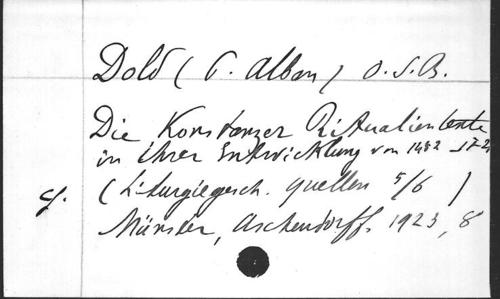 Dold (P. Alban) O.S.B.
Die Konstanzer Ritualientexte
in ihrer Entwicklung von 1482 - 172
(Liturgiegesch. Quellen 5/6)
Münster, Aschendorff. 1923, 8